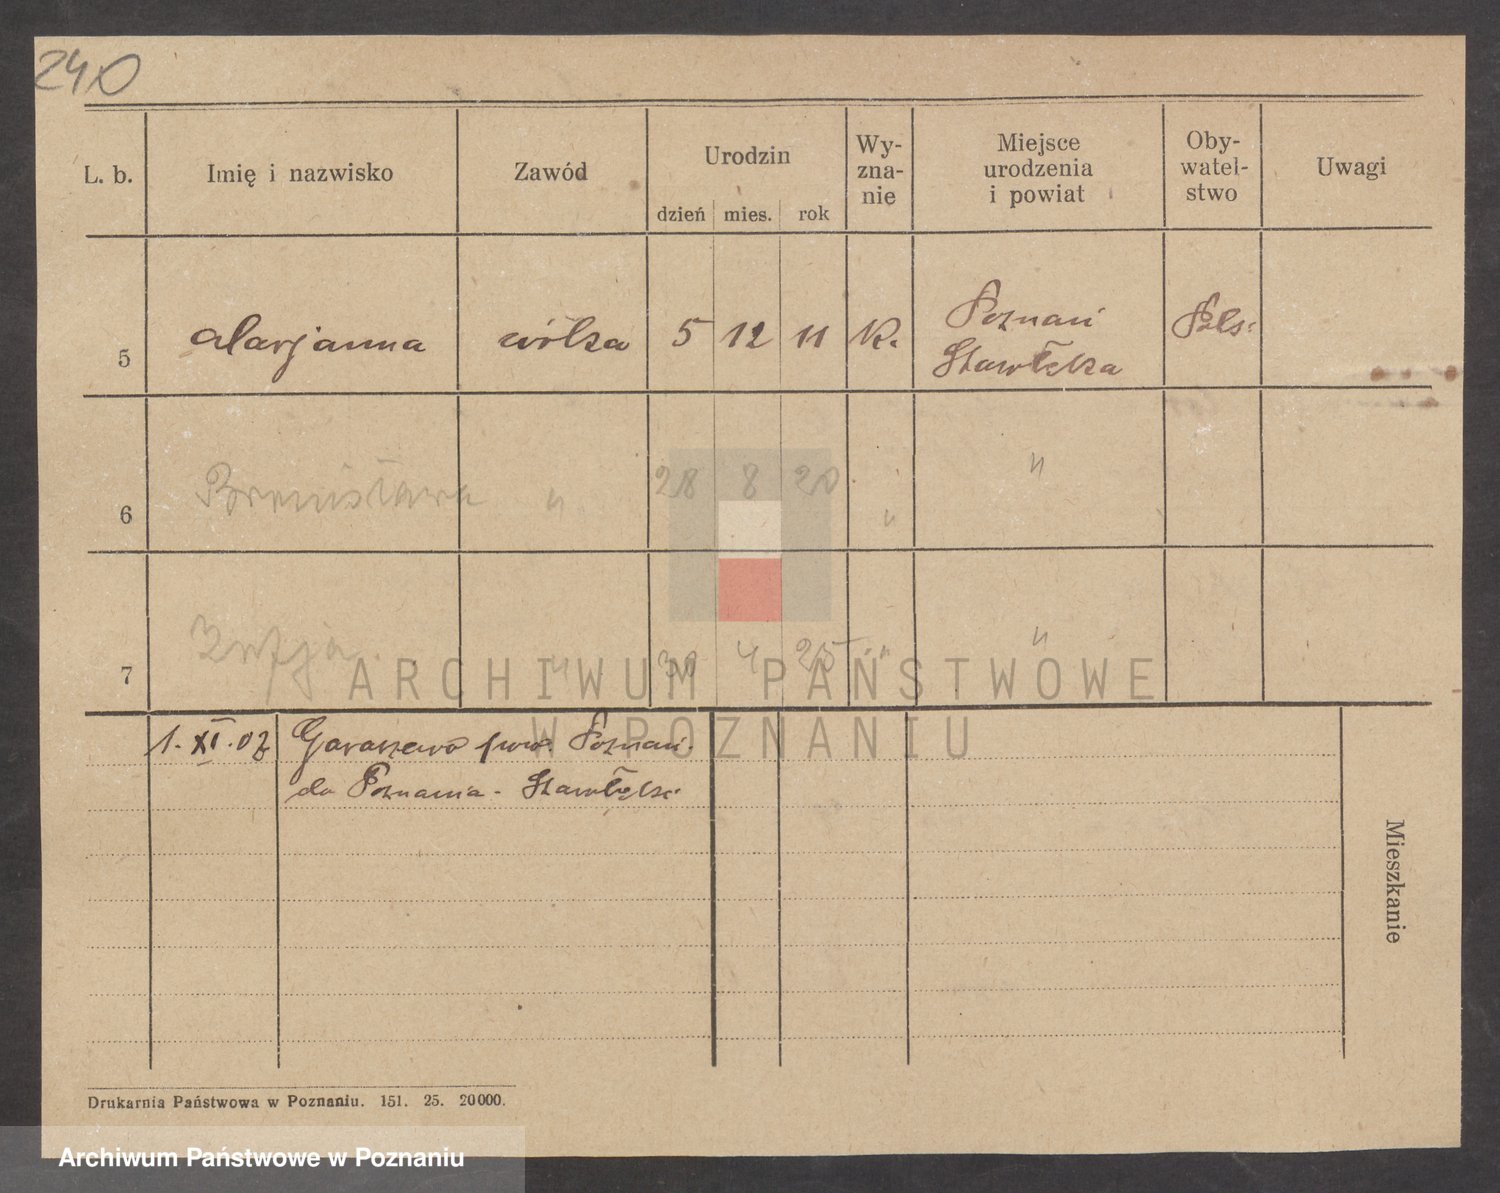 240
L. b.
Imię i nazwisko
Zawód
Urodzin
dzień mies. rok
Wy-
zna-
nie
Miejsce
urodzenia
i powiat
Oby-
watel-
stwo
Uwagi
5 Marjanna córka 5 12 11 K. Poznań Pols:
Starołęka
6 Bronisława " 28 8 20 " "
7 Zofja " 30 4 25 " "
ARCHIWUM PAŃSTWOWE
W POZNANIU
1. XI. 02 Garaszewo pow. Poznań.
do Poznania - Starołęka
Mieszkanie
Drukarnia Państwowa w Poznaniu. 151. 25. 20000.
Archiwum Państwowe w Poznaniu